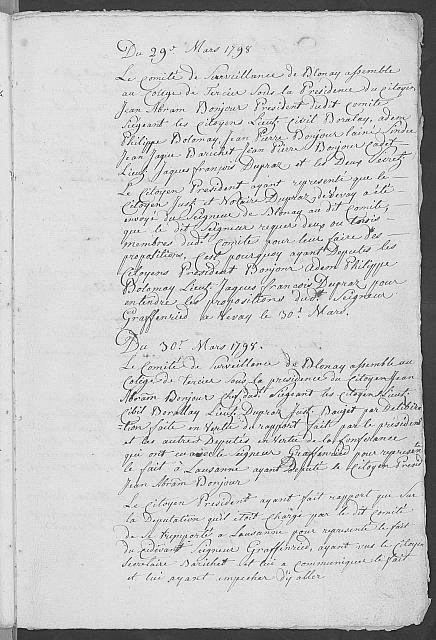 Du 29e Mars 1798
Le Comité de Surveillance de Blonay assemblé
au Colege de Tercier sous la Presidence du Citoyen
Jean Abram Bonjour President dudit Comité
Siegeant les Citoyens Lieut Cibil Boralay, adem
Philippe Bolomay, Jean Pierre Bonjour lainé Sindic
Jean Jaque Barichet Jean Pierre Bonjour Cadet
Lieut Jaques françois Dupraz et les Deux Secret
Le Citoyen President ayant representé que le
Citoyen Just et Notaire Dupraz de Vevay a été
envoyé du Seigneur de Blonay au dit Comité
que le dit Seigneur requer deux ou troisis
membres dudt Comité pour leur faire des
propositions. C'est pourquoy ayant Deputés les
Citoyens President Bonjour adem Philippe
Bolomay Lieut Jaques francois Dupraz pour
entendre les propositions dudt Seigneur
Graffenried a Vevay le 30e Mars.
Du 30e Mars 1798.
Le Comité de Surveillance de Blonay assemblé au
Colege de Tercier sous la presidence du Citoyen Jean
Abram Bonjour Chef dudt Siegeant les Citoyen Lieut
Cibil Borallay Lieut Dupraz Just Bauget par Delibéra
-tion faite en Vertu du rapport fait par le president
et les autres Deputés en Vertu de la Conferance
qui ont eu avec le seigneur Graffenried pour represente
le fait à Lausanne ayant Deputé le Citoyen Presid
Jean Abram Bonjour
Le Citoyen President ayant fait rapport que sur
la Deputation quil étoit Chargé par le dit Comité
de se tremporté a Lausanne pour representé le fait
du cidevant Seigneur Graffenried, ayant vus le Citoyen
Secretaire Barichet et lui a communiquer le fait
et lui ayant empecher d'y aller